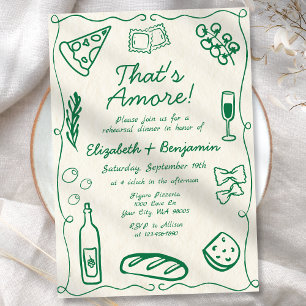 That's
Amore!
Please join us for a
rehearsal dinner in honor of
Elizabeth + Benjamin
Saturday, September 19th
at 4 o'clock in the afternoon
Figaro Pizzeria
1000 Love Ln
Your City, WA 98005
RSVP to Allison
at 123-456-7890